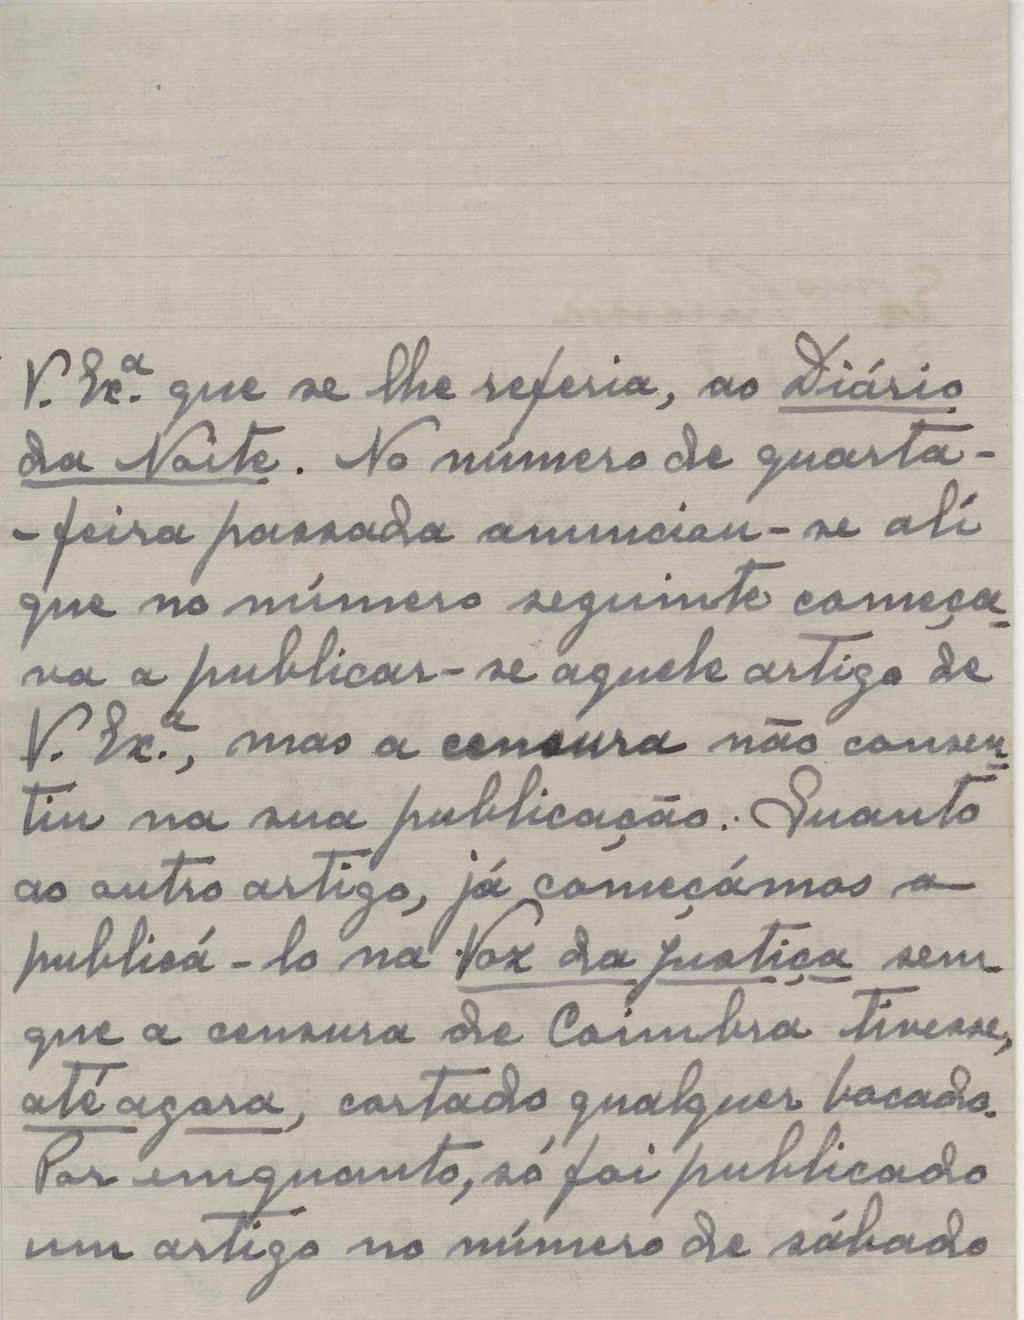 V. Ex.ª que se lhe referia, ao Diário
da Noite. No número de quarta-
-feira passada anunciou-se alí
que no número seguinte começa
va a publicar-se aquele artigo de
V. Ex.ª, mas a censura não consen
tiu na sua publicação. Quanto
ao outro artigo, já começámos a
publicá-lo na Voz da Justiça sem
que a censura de Coimbra tivesse,
até agora, cortado qualquer bocado.
Por emquanto, só foi publicado
um artigo no número de sábado